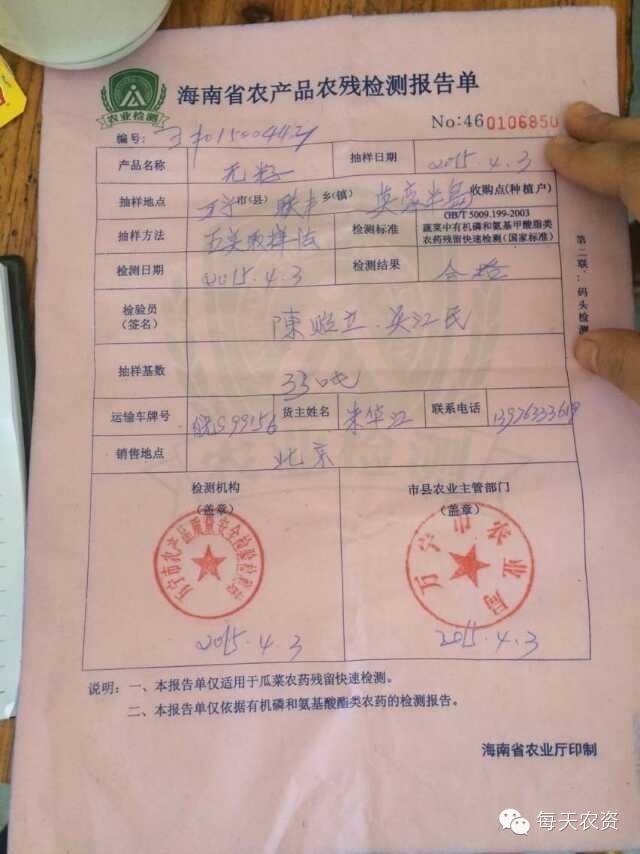 农业检测
海南省农产品农残检测报告单
No:46 0106850
编号:
产品名称 无籽 抽样日期 2015.4.3
抽样地点 万宁 市(县) 联丰 乡(镇) 收购点(种植户)
抽样方法 五点取样法 检测标准 GB/T 5009.199-2003
蔬菜中有机磷和氨基甲酸脂类
农药残留快速检测(国家标准)
检测日期 2015.4.3 检测结果 合格
检验员
(签名)
抽样基数 33吨
运输车牌号 货主姓名 朱华江 联系电话
销售地点 北京
检测机构
(盖章)
万宁市农产品质量安全检验检测站
2015.4.3
市县农业主管部门
(盖章)
万宁市农业局
2015.4.3
第二联:码头检测
说明:一、本报告单仅适用于瓜菜农药残留快速检测。
二、本报告单仅依据有机磷和氨基酸酯类农药的检测报告。
海南省农业厅印制
每天农资